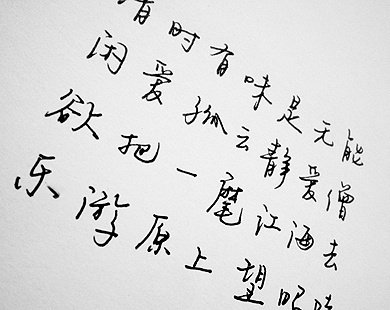 时有味是无能
闲爱孤云静爱僧
欲把一麾江海去
乐游原上望昭